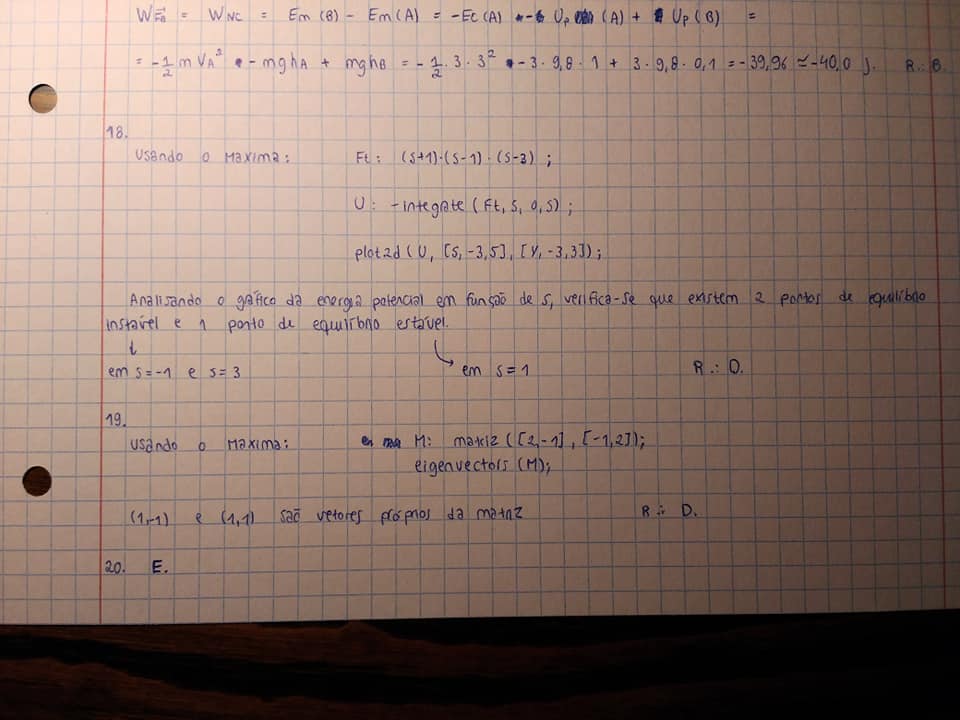 W_Fa = W_NC = Em (B) - Em (A) = -Ec (A) - Up (A) + Up (B) =
= -1/2 m VA² - mghA + mghB = -1/2 · 3 · 3² - 3 · 9,8 · 1 + 3 · 9,8 · 0,1 = -39,96 ≃ -40,0 J. R.: B.
18.
Usando o Maxima: Ft: (s+1)·(s-1)·(s-3) ;
U: -integate (Ft, s, 0, s) ;
plot2d (U, [s, -3,5], [y, -3,3]);
Analisando o gráfico da energia potencial em função de s, verifica-se que existem 2 pontos de equilíbrio
instável e 1 ponto de equilíbrio estável.
↓
em s=-1 e s=3 em s=1 R.: D.
19.
Usando o Maxima: M: matriz ([2,-1], [-1,2]);
eigenvectors (M);
(1,-1) e (1,1) são vetores próprios da matriz R.: D.
20. E.